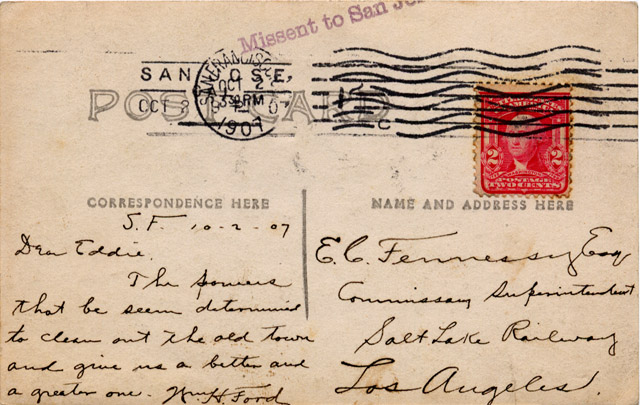 Missent to San Jo
SAN JOSE,
SAN FRANCISCO
OCT 2
3 30 PM
1907
OCT 2
POST CARD
2 2
POSTAGE
TWO CENTS
CORRESPONDENCE HERE
NAME AND ADDRESS HERE
S.F. 10-2-07
Dear Eddie.
The powers
that be seem determined
to clean out the old town
and give us a better and
a greater one. Wm H. Ford
E. C. Fennessy Esq
Commissary Superintendent
Salt Lake Railway
Los Angeles.